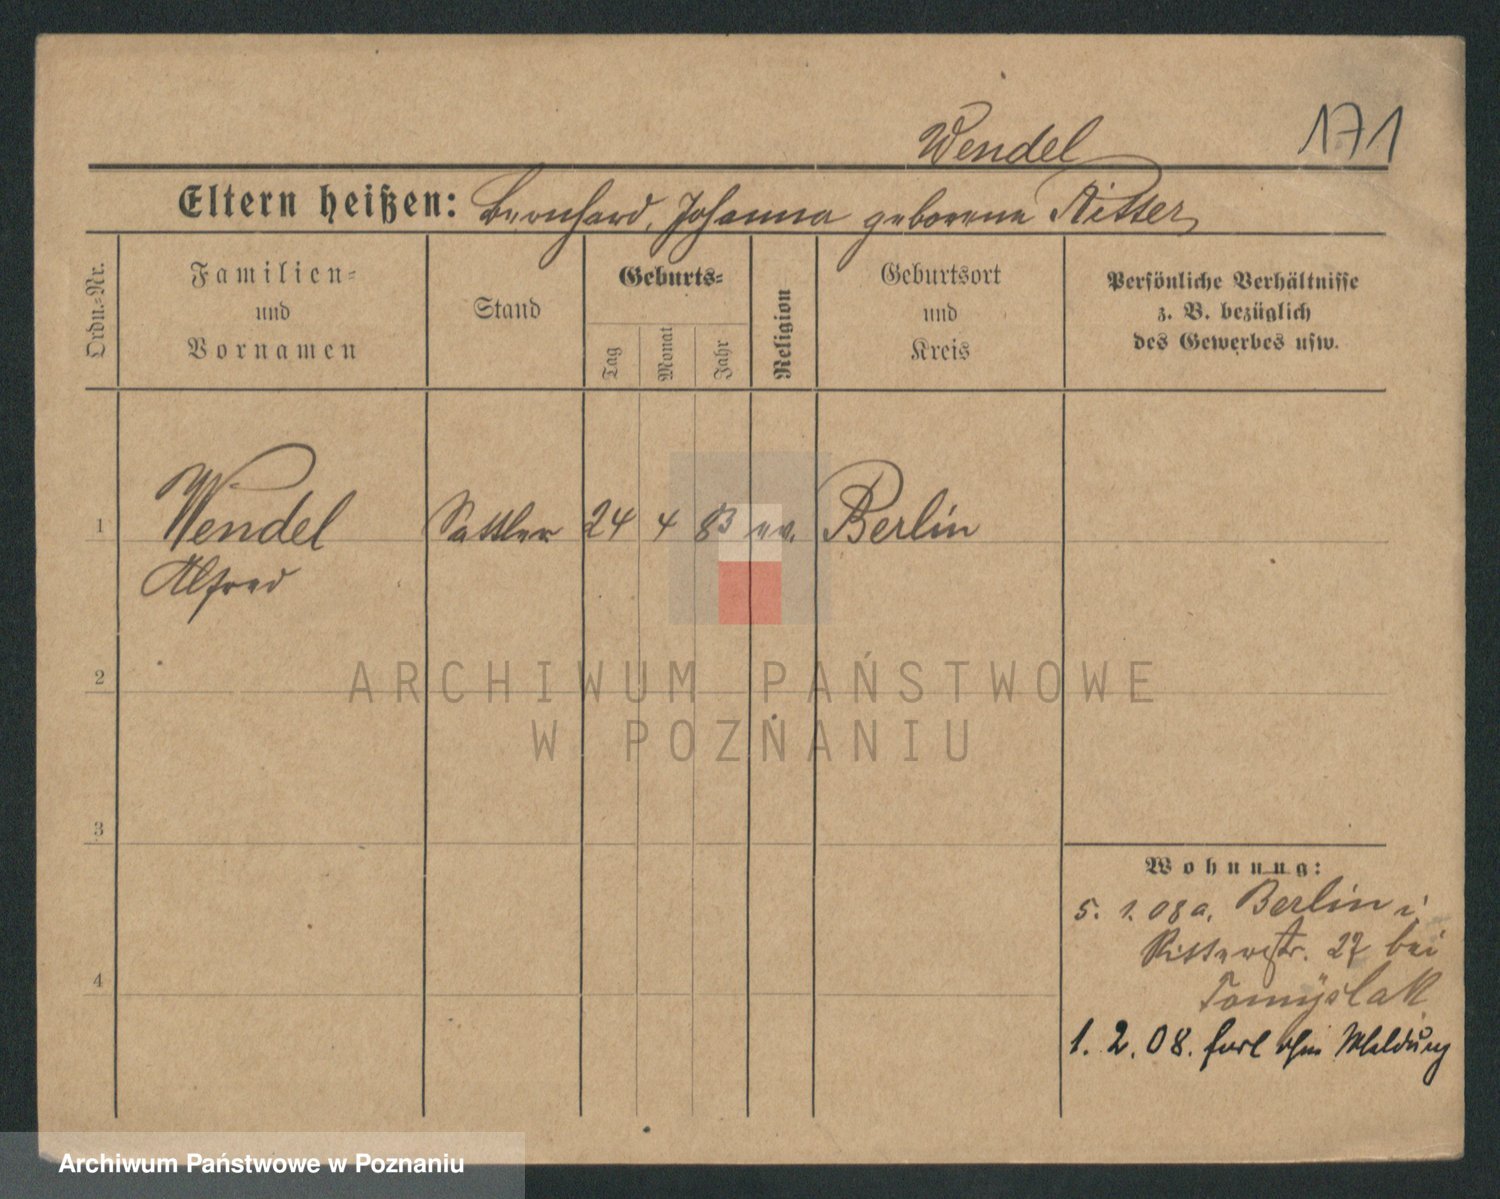 Wendel 171
Eltern heißen: Bernhard, Johanna geborene Ritter
Ordn.=Nr.
Familien=
und
Vornamen
Stand
Geburts=
Tag
Monat
Jahr
Religion
Geburtsort
und
Kreis
Persönliche Verhältnisse
z. B. bezüglich
des Gewerbes usw.
1 Wendel Sattler 24 4 83 ev. Berlin
Alfred
2
ARCHIWUM PAŃSTWOWE
W POZNANIU
3
Wohnung:
5. 1. 08 a. Berlin i.
Ritterstr. 27 bei
4
Tomÿslak
1. 2. 08. fort ohne Meldung
Archiwum Państwowe w Poznaniu